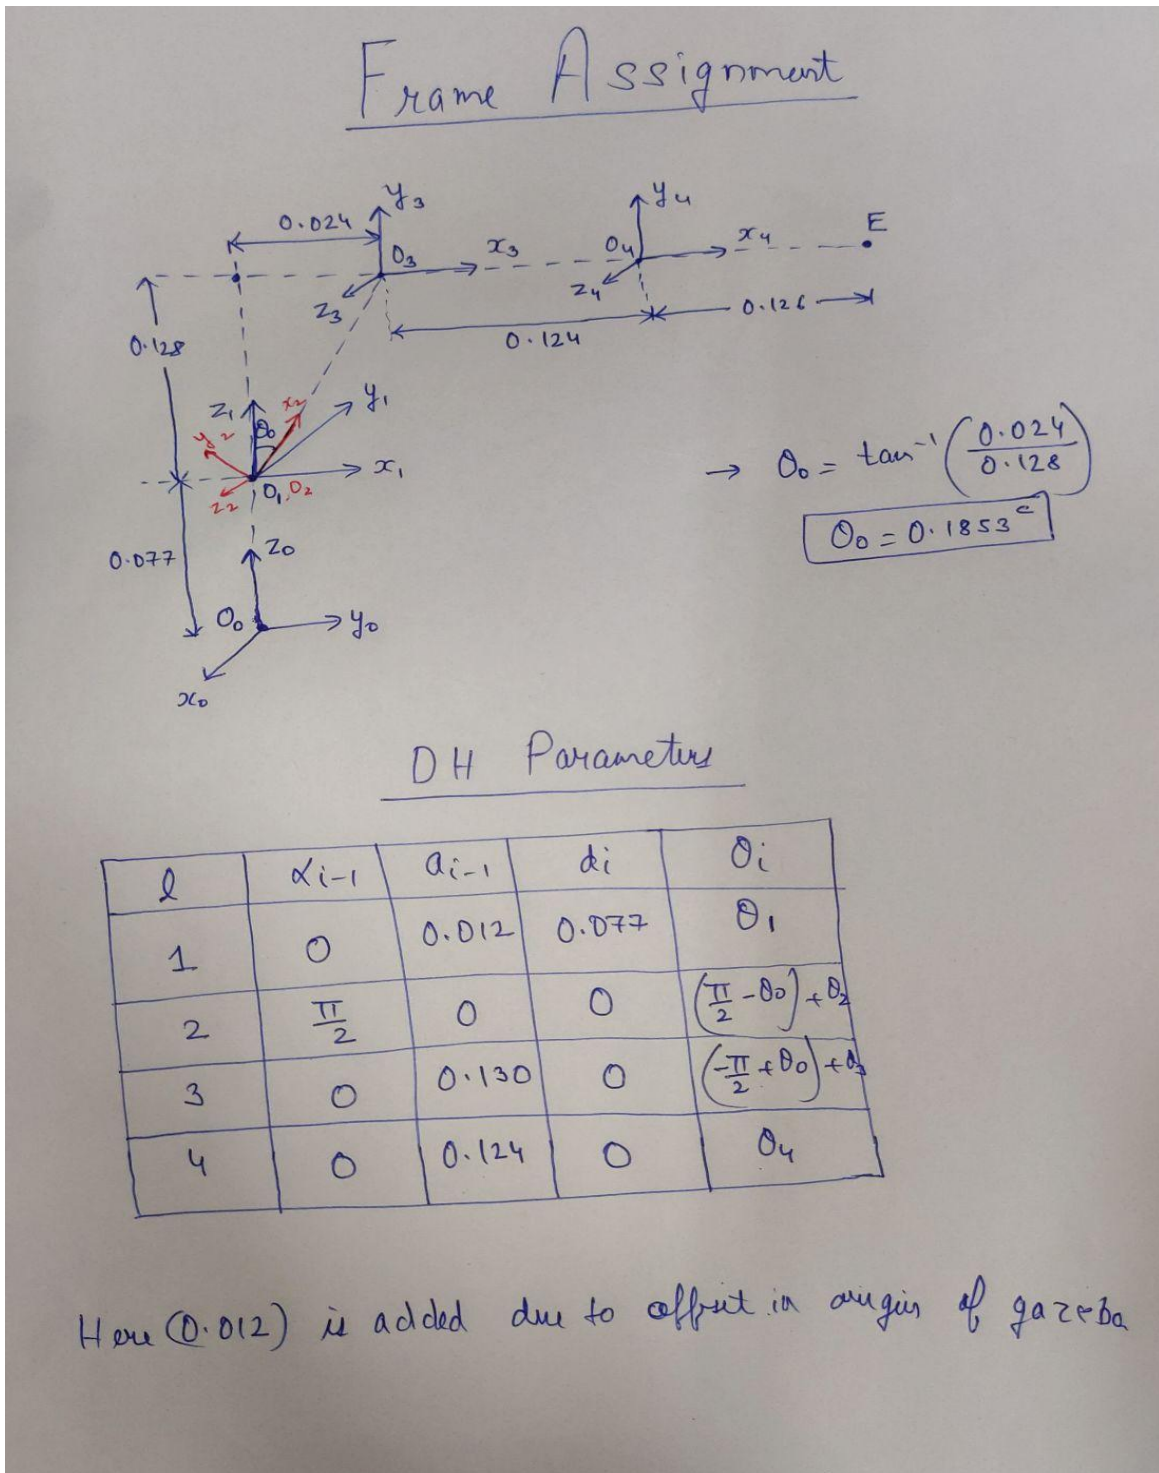 Frame Assignment
y₃
y₄
0.024
E
O₃
x₃
O₄
x₄
z₃
z₄
0.126
0.124
0.128
z₁
θ₀
x₂
y₁
y₂
x₁
z₂
O₁,O₂
→ θ₀ = tan⁻¹ (0.024/0.128)
θ₀ = 0.1853ᶜ
0.077
z₀
O₀
y₀
x₀
DH Parameters
l αᵢ₋₁ aᵢ₋₁ dᵢ θᵢ
1 0 0.012 0.077 θ₁
2 π/2 0 0 (π/2 - θ₀) + θ₂
3 0 0.130 0 (-π/2 + θ₀) + θ₃
4 0 0.124 0 θ₄
Here (0.012) is added due to offset in origin of gazebo